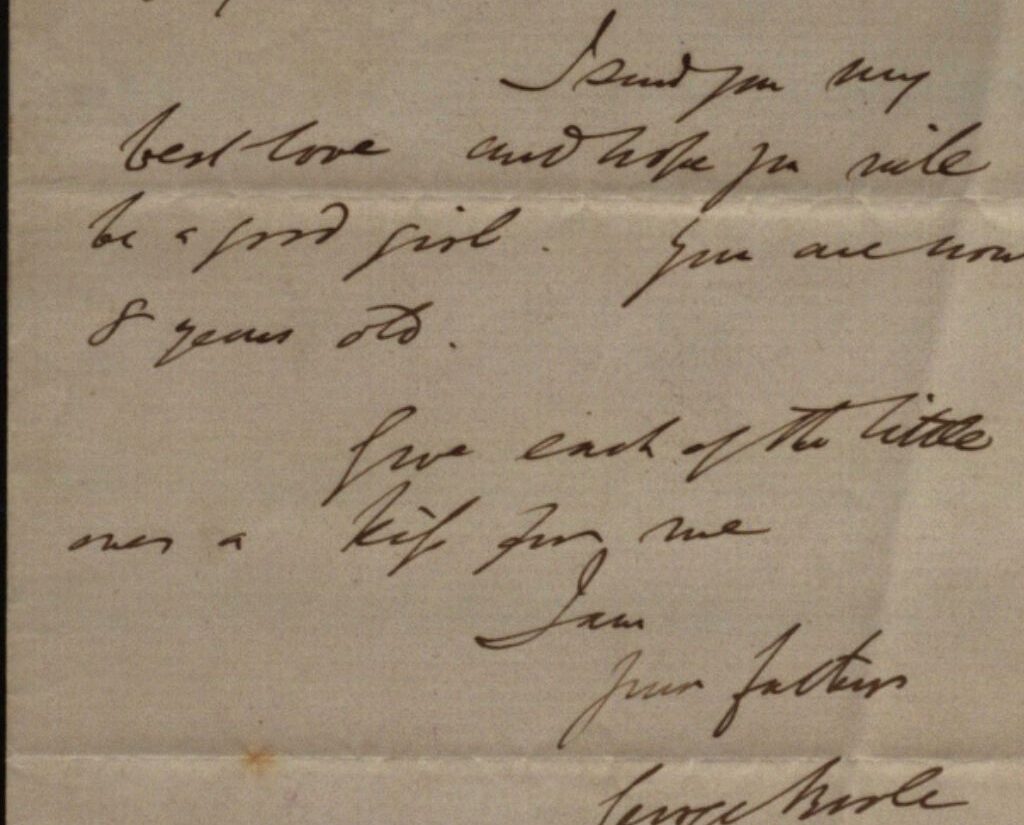 I send you my
best love and hope you will
be a good girl. You are now
8 years old.
Give each of the little
ones a kiss for me
I am
your father
George Boole